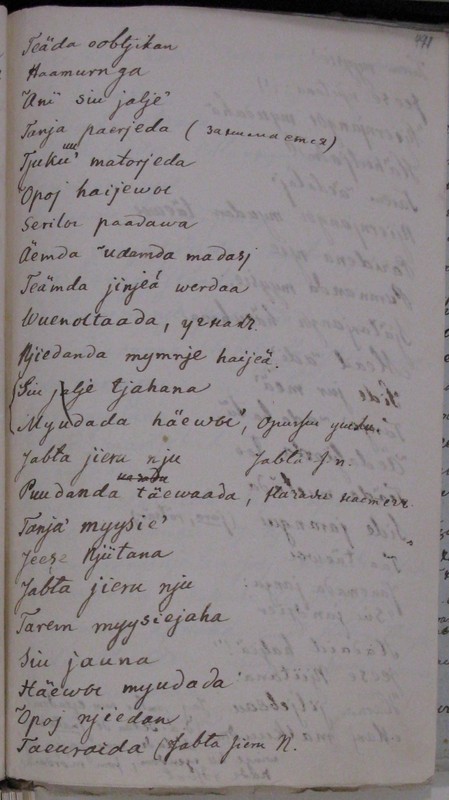 441
Teäda oobtjikan
Haamurnga
Äni siu jaljé
Tanja paerjeda (занимается)
Tjukú matorjeda
Opoj haijewoe
Seriloe paadawa
Äemda udamda madasj
Teämda jinjeá werdaa
Wuenoltaada, угнадь
Njiedanda mymnje haijeä.
Siu jalje tjahana
Myudada häewoe,
Jabta jieru nju Jabta J. n.
Puudanda täewaada,
Tanja myysié
Jeese Njütana
Jabta jieru nju
Tarem myysiejaha
Siu jauna
Häewoe myudada
Opoj njiedan
Taeuraida (Jabta Jieru N.